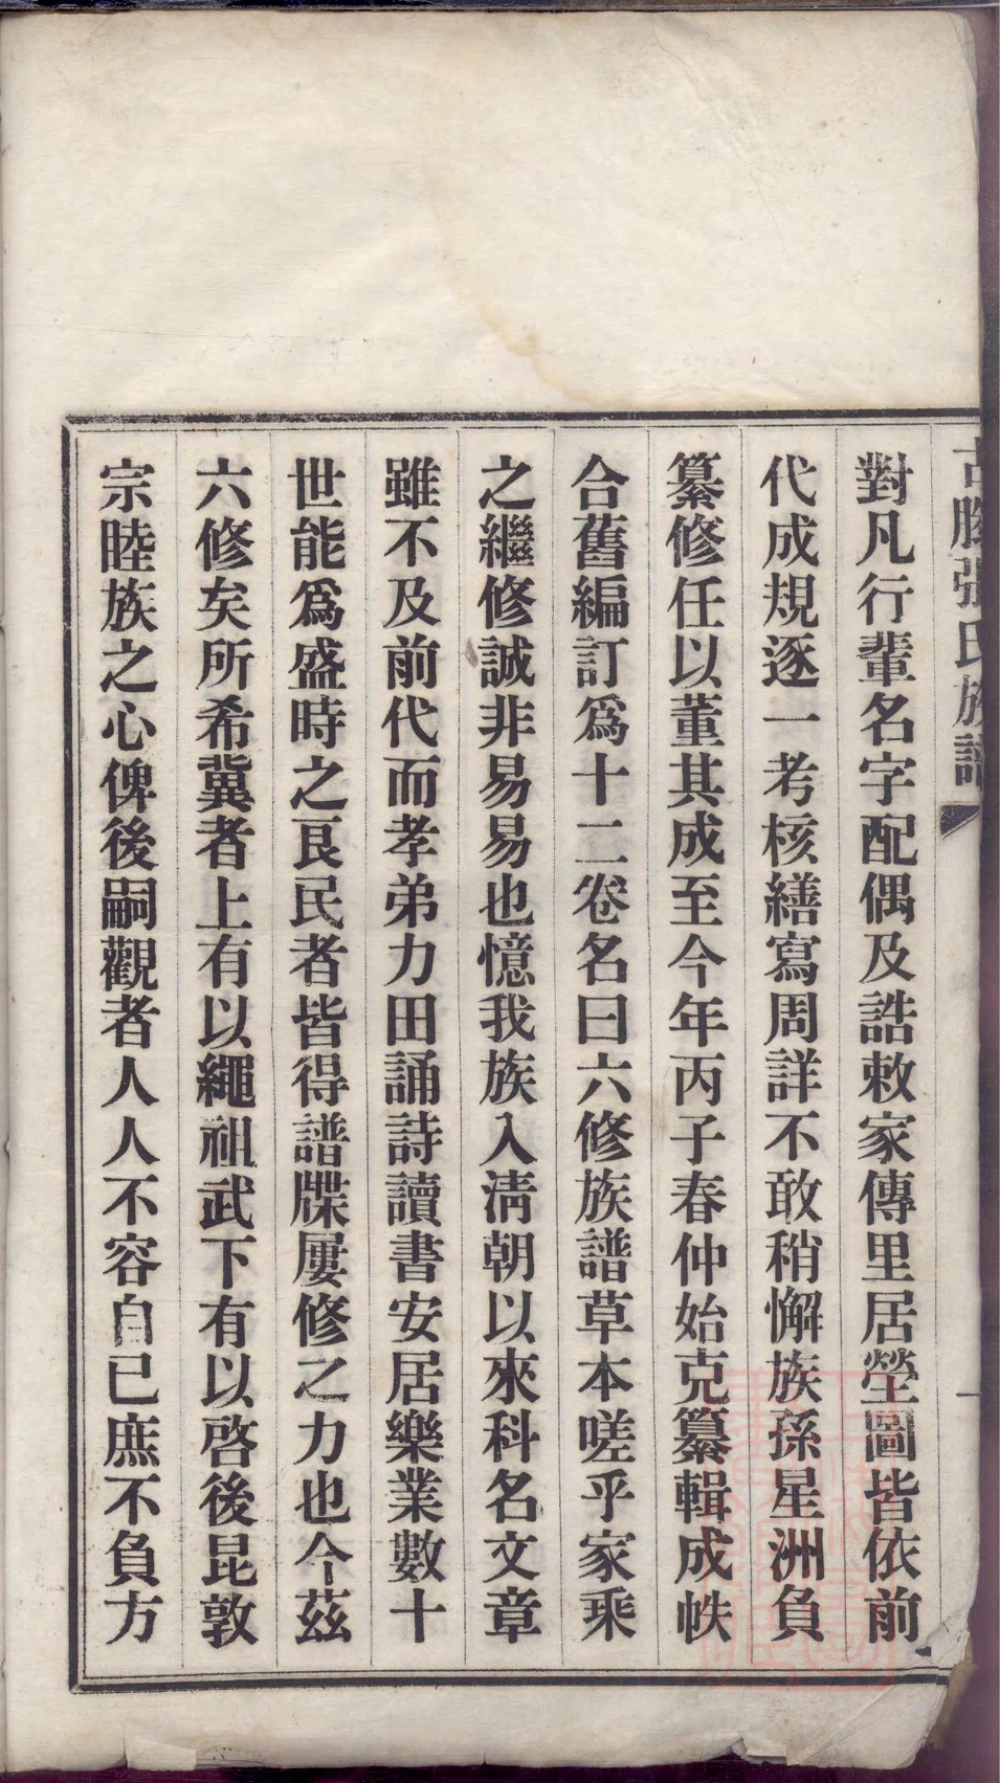 古滕張氏族譜
一
對凡行輩名字配偶及誥敕家傳里居塋圖皆依前
代成規逐一考核繕寫周詳不敢稍懈族孫星洲負
纂修任以董其成至今年丙子春仲始克纂輯成帙
合舊編訂爲十二卷名曰六修族譜草本嗟乎家乘
之繼修誠非易易也憶我族入淸朝以來科名文章
雖不及前代而孝弟力田誦詩讀書安居樂業數十
世能爲盛時之良民者皆得譜牒屢修之力也今茲
六修矣所希冀者上有以繩祖武下有以啓後昆敦
宗睦族之心俾後嗣觀者人人不容自已庶不負方